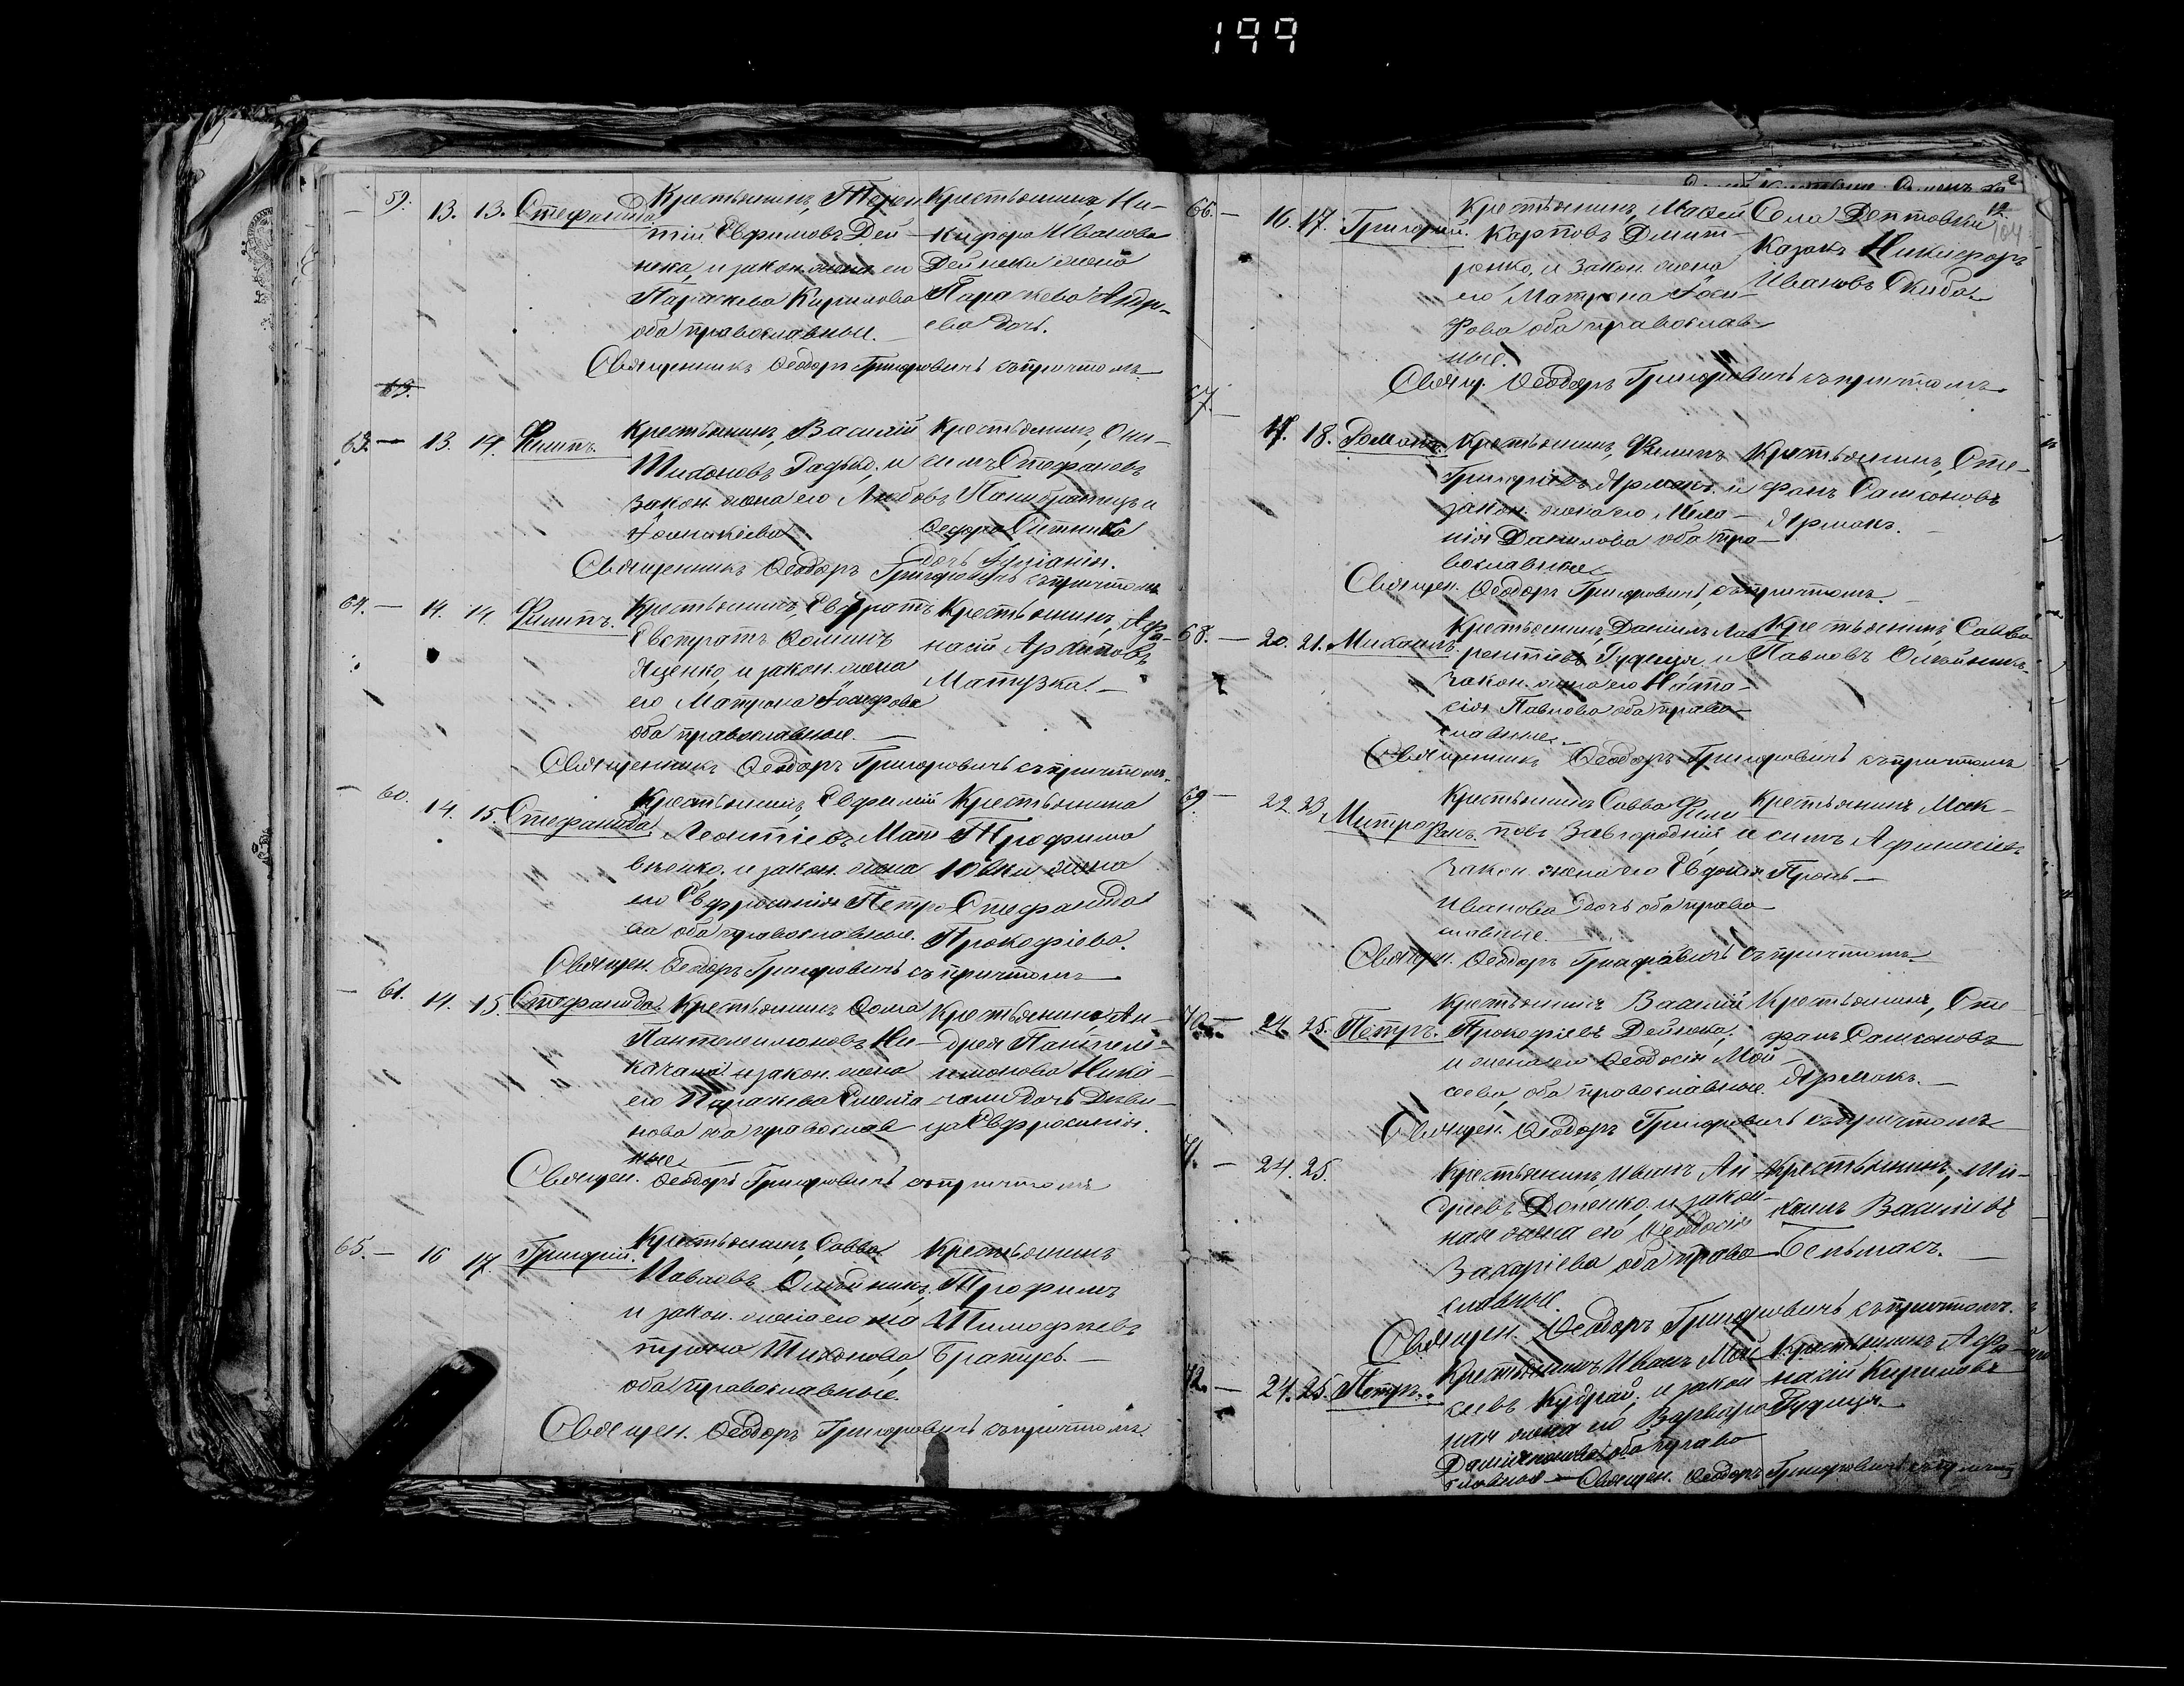 199
59. 13. 13. Стефанида
Крестьянинъ, Терен
тій Евфимовъ Дей
нека, и закон. жена ей
Параскева Кирилова
оба православные.
Крестьянина, Ни-
кифора Иванова
Дейнеки жена
Параскева Андре-
ева дочь.
Священникъ Ѳеодоръ Григоровичъ съ причтомъ
63. 13. 14. Филипъ.
Крестьянинъ, Василій
Тихоновъ и
закон. жена его Любовь
Крестьянинъ, Они-
симъ Стефановъ
дочь Іуліанія.
Священникъ Ѳеодоръ Григоровичъ съ причтомъ
64. 14. 14. Филипъ.
Крестьянинъ,
Евстратъ
Яценко, и закон. жена
его Матрона Іосифова
оба православные.
Крестьянинъ, Афа-
насій Архиповъ
Матузка.
Священникъ Ѳеодоръ Григоровичъ съ причтомъ.
60. 14. 15. Стефанида.
Крестьянинъ, Евфимій
Леонтіевъ Мат
вѣенко, и закон. жена
его Евфросинія Петро
ва оба православные.
Крестьянина
Трофима
Ювки жена
Стефанида
Прокофіева.
Священ. Ѳеодоръ Григоровичъ съ причтомъ
61. 14. 15. Стефанида.
Крестьянинъ Ѳома
Пантелеимоновъ Ни-
качала и закон. жена
его Параскева
нова оба православ
ные
Крестьянина, Ан-
дрея Пантеле-
имонова
дочь Дѣви-
ца Евфросинія.
Священ. Ѳеодоръ Григоровичъ съ причтомъ
65. 16 17. Григорій.
Крестьянинъ, Савва
Павловъ Олейникъ,
и закон. жена его Ма
трона Тихонова,
оба православные.
Крестьянинъ
Трофимъ
Тимофѣевъ
Братусь.
Священ. Ѳеодоръ Григоровичъ съ причтомъ.
104
66. 16. 17. Григорій.
Крестьянинъ, Мокей
Карповъ Дмит-
ренко, и закон. жена
его Матрона Іоси-
фова оба православ-
ные.
Села Дептовки
Казакъ Никифоръ
Ивановъ Скиба
Свящ. Ѳеодоръ Григоровичъ съ причтомъ
67. 17. 18. Романъ.
Крестьянинъ, Филипъ
Григоріевъ Ярмакъ. и
закон. жена его Мела-
нія Данилова оба пра-
вославные
Крестьянинъ, Сте-
фанъ Самсоновъ
Ярмакъ.
Священ. Ѳеодоръ Григоровичъ, съ причтомъ.
68. 20. 21. Михаилъ.
Крестьянинъ, Даніилъ Лав
рентіевъ Гудица. и
закон. жена его Наста-
сія Павлова оба право
славные.
Крестьянинъ, Савва
Павловъ Олейникъ.
Священникъ Ѳеодоръ Григоровичъ съ причтомъ
69. 22. 23. Митрофанъ.
Крестьянинъ Савва Фили
повъ Завгородній и
закон. жена его Евдокія
Иванова дочь оба право
славные.
Крестьянинъ Мак-
симъ Афанасіевъ
Священ. Ѳеодоръ Григоровичъ съ причтомъ.
70. 24. 25. Петръ.
Крестьянинъ Василій
Прокофіевъ Дейнека,
и жена его Ѳеодосія Мой
сеева, оба православные.
Крестьянинъ, Сте-
фанъ Самсоновъ
Ярмакъ.
Священ. Ѳеодоръ Григоровичъ съ причтомъ
71. 24. 25.
Крестьянинъ, Иванъ Ан
дреевъ и закон-
ная жена его Ѳеодосія
Захаріева оба право
славные.
Крестьянинъ, Ми-
хаилъ Василіевъ
Священ. Ѳеодоръ Григоровичъ съ причтомъ.
72. 24. 25 Петръ.
Крестьянинъ, Иванъ Мой
сеевъ Кудрай, и закон
ная жена его Варвара
оба право
славные
Крестьянинъ Афа-
насій Кириловъ
Гудица.
Священ. Ѳеодоръ Григоровичъ съ причт